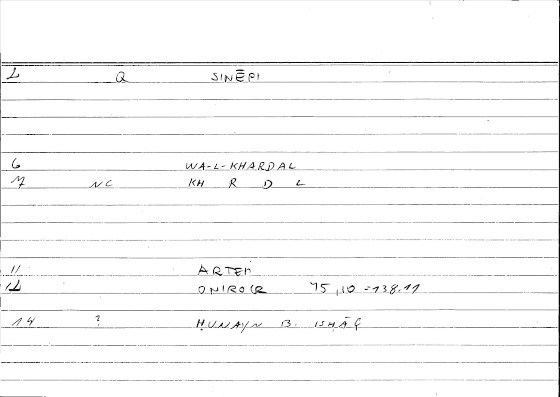 1 Q SINĒPI
6 WA-L-KHARDAL
7 NC KH R D L
11 ARTEM
12 ONIROCR 75,10 = 138.11
14 ? ḤUNAYN B. ISḤĀQ